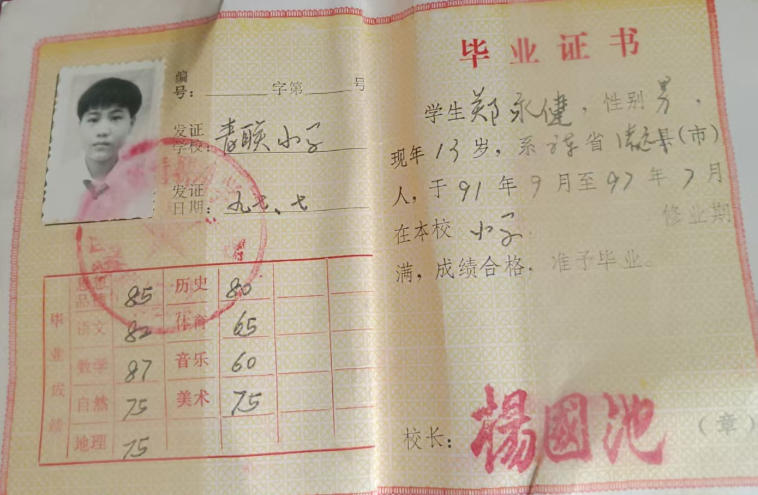 编号：______字第______号
发证学校：青联小学
发证日期：九七、七
毕业成绩
思想品德 85 历史 80
语文 82 体育 65
数学 87 音乐 60
自然 75 美术 75
地理 75
毕业证书
学生郑永健，性别男，
现年13岁，系 省 县(市)
人，于91年9月至97年7月
在本校 小学 修业期
满，成绩合格，准予毕业。
校长：楊國池（章）